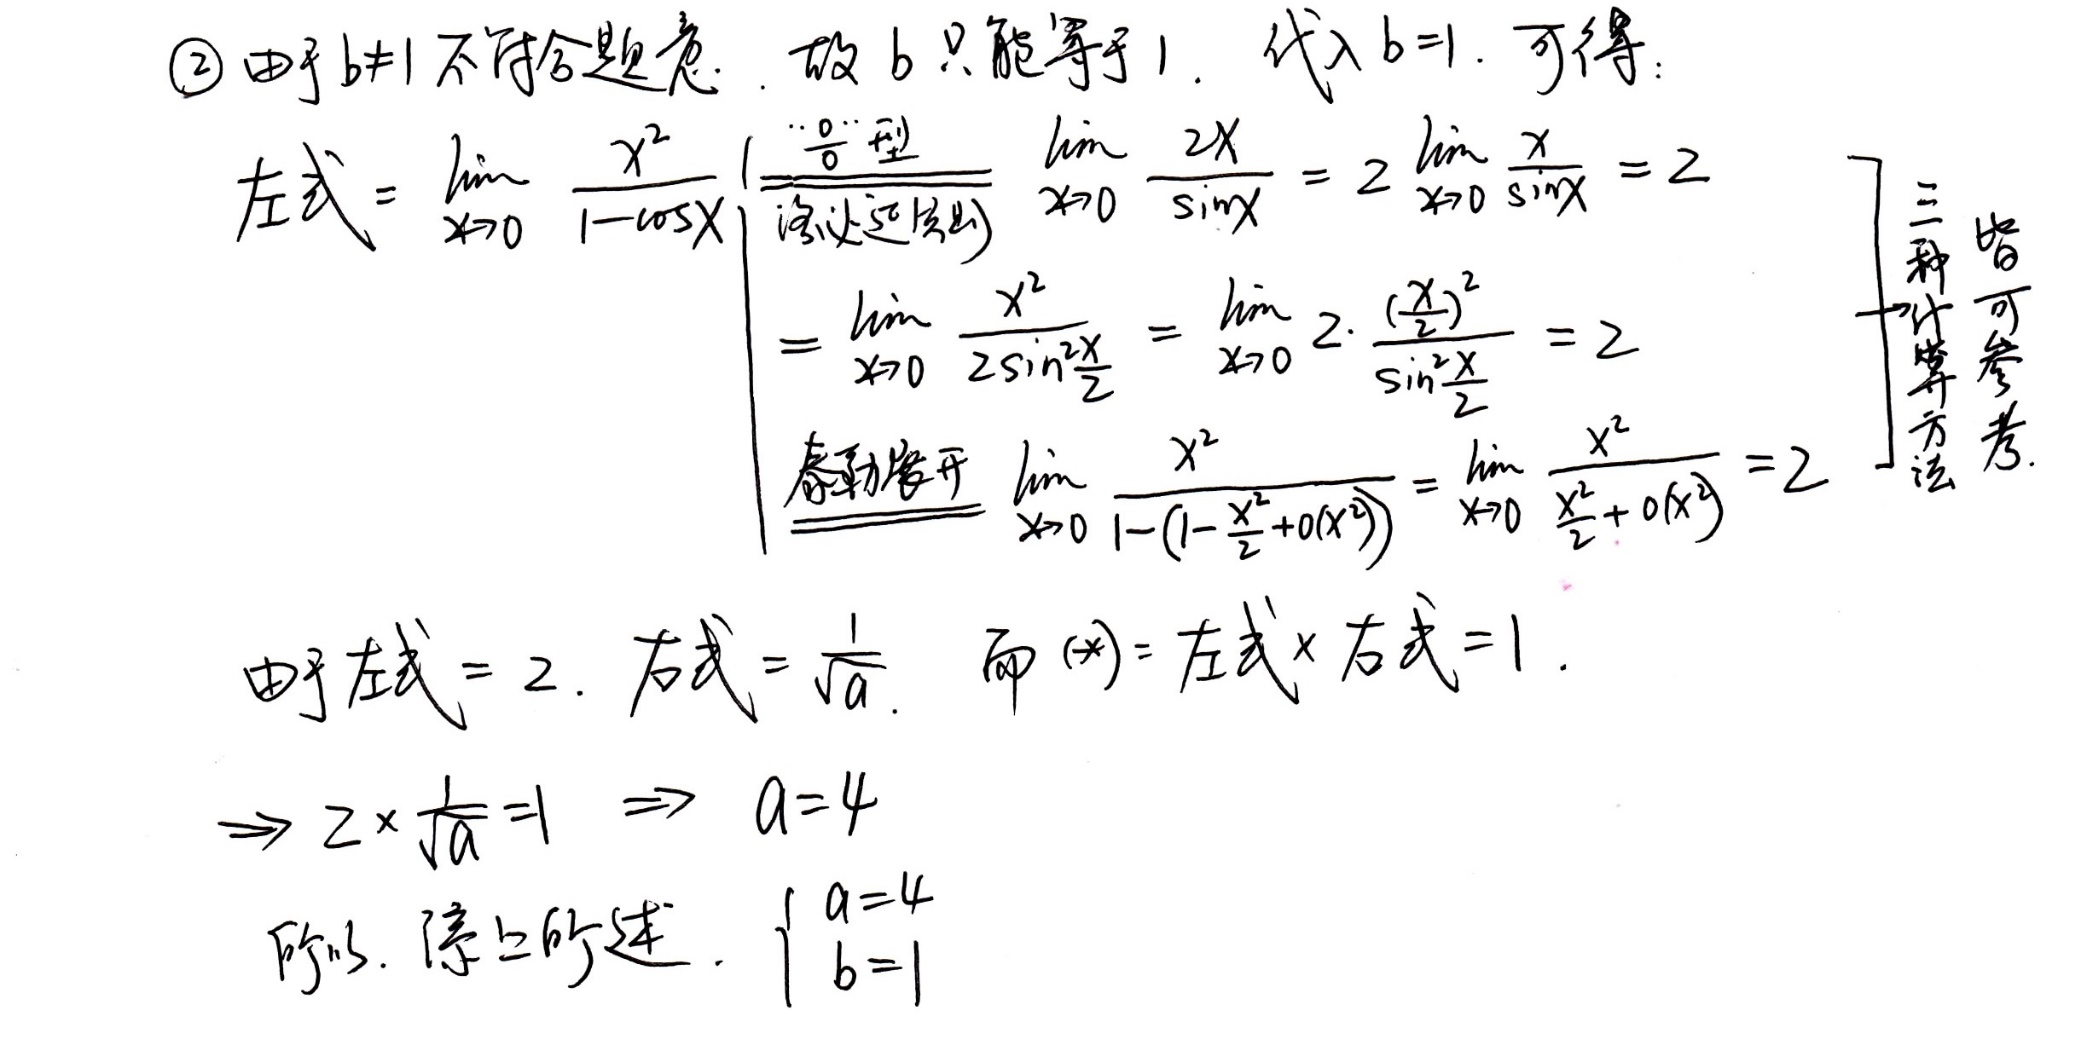 ② 由于 b≠1 不符合题意. 故 b 只能等于 1. 代入 b=1. 可得:
左式 = lim x→0 x²/(1-cosx) "0/0"型 洛必达法则 lim x→0 2x/sinx = 2 lim x→0 x/sinx = 2
= lim x→0 x²/(2sin²x/2) = lim x→0 2·(x/2)²/(sin²x/2) = 2
泰勒展开 lim x→0 x²/(1-(1-x²/2+o(x²))) = lim x→0 x²/(x²/2+o(x²)) = 2
三种计算方法
皆可参考.
由于左式 = 2. 右式 = 1/√a. 而 (*) = 左式 × 右式 = 1.
⇒ 2 × 1/√a = 1 ⇒ a=4
所以. 综上所述. { a=4
b=1